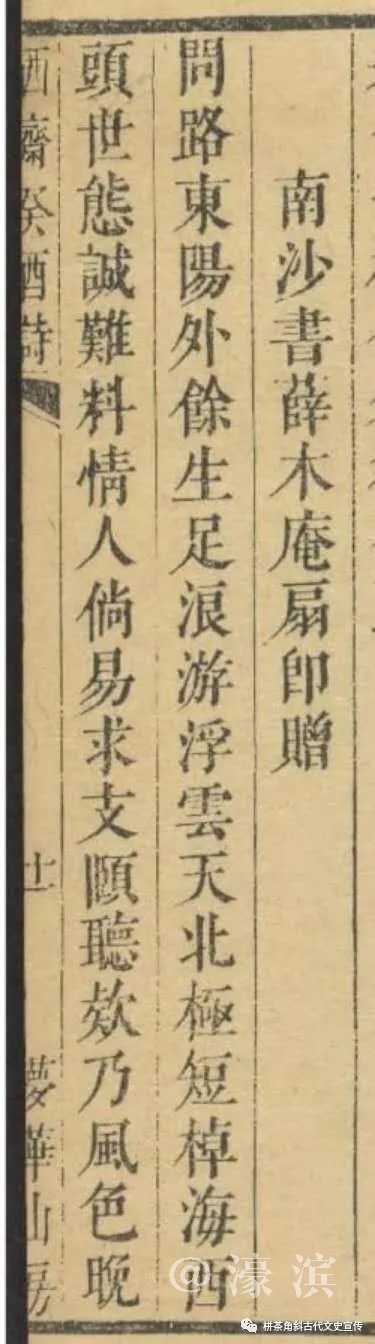 南沙書薛木庵扇卽贈
問路東陽外餘生足浪游浮雲天北極短棹海西
頭世態誠難料情人倘易求支頤聽欸乃風色晚
酒齋癸酉詩
十一
夢華山房
@濠滨
栟茶角斜古代文史宣传